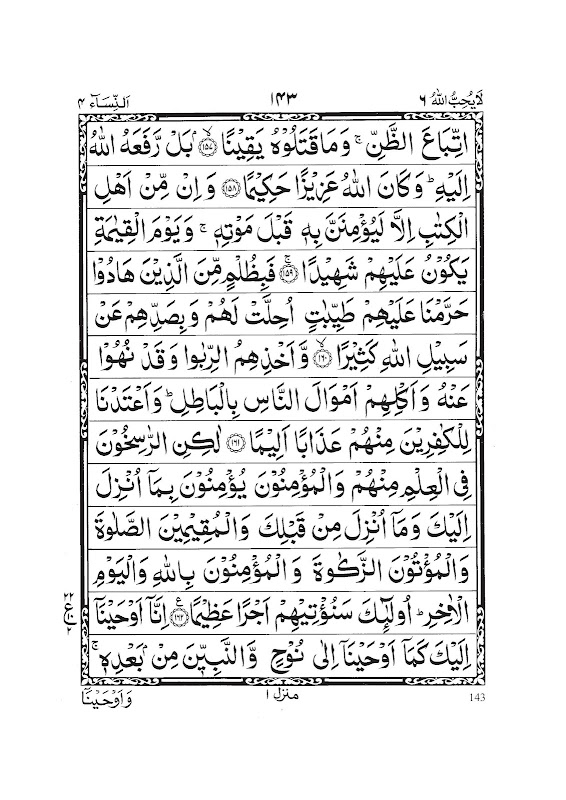 لَا يُحِبُّ اللهُ ٦ ١٤٣ اَلنِّسَآء ٤
اتِّبَاعَ الظَّنِّ ۚ وَمَا قَتَلُوْهُ يَقِيْنًا ﴿١٥٧﴾ بَلْ رَّفَعَهُ اللهُ
اِلَيْهِ ؕ وَكَانَ اللهُ عَزِيْزًا حَكِيْمًا ﴿١٥٨﴾ وَاِنْ مِّنْ اَهْلِ
الْكِتٰبِ اِلَّا لَيُؤْمِنَنَّ بِهٖ قَبْلَ مَوْتِهٖ ۚ وَيَوْمَ الْقِيٰمَةِ
يَكُوْنُ عَلَيْهِمْ شَهِيْدًا ﴿١٥٩﴾ فَبِظُلْمٍ مِّنَ الَّذِيْنَ هَادُوْا
حَرَّمْنَا عَلَيْهِمْ طَيِّبٰتٍ اُحِلَّتْ لَهُمْ وَبِصَدِّهِمْ عَنْ
سَبِيْلِ اللهِ كَثِيْرًا ﴿١٦٠﴾ وَّاَخْذِهِمُ الرِّبٰوا وَقَدْ نُهُوْا
عَنْهُ وَاَكْلِهِمْ اَمْوَالَ النَّاسِ بِالْبَاطِلِ ؕ وَاَعْتَدْنَا
لِلْكٰفِرِيْنَ مِنْهُمْ عَذَابًا اَلِيْمًا ﴿١٦١﴾ لٰكِنِ الرّٰسِخُوْنَ
فِى الْعِلْمِ مِنْهُمْ وَالْمُؤْمِنُوْنَ يُؤْمِنُوْنَ بِمَاۤ اُنْزِلَ
اِلَيْكَ وَمَاۤ اُنْزِلَ مِنْ قَبْلِكَ وَالْمُقِيْمِيْنَ الصَّلٰوةَ
وَالْمُؤْتُوْنَ الزَّكٰوةَ وَالْمُؤْمِنُوْنَ بِاللهِ وَالْيَوْمِ
الْاٰخِرِ ؕ اُولٰٓئِكَ سَنُؤْتِيْهِمْ اَجْرًا عَظِيْمًا ﴿١٦٢﴾ اِنَّاۤ اَوْحَيْنَاۤ
اِلَيْكَ كَمَاۤ اَوْحَيْنَاۤ اِلٰى نُوْحٍ وَّالنَّبِيّٖنَ مِنْۢ بَعْدِهٖ ۚ
٢٢
ع ١٠
٢
143 منزل ١ وَاَوْحَيْنَاۤ